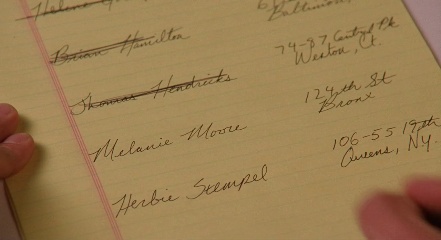 Helene
Baltimore,
Brian Hamilton
74-97 Central Pk
Weston, Ct.
Thomas Hendricks
124th St
Bronx
Melanie Moore
106-55 17th
Queens, NY.
Herbie Stempel